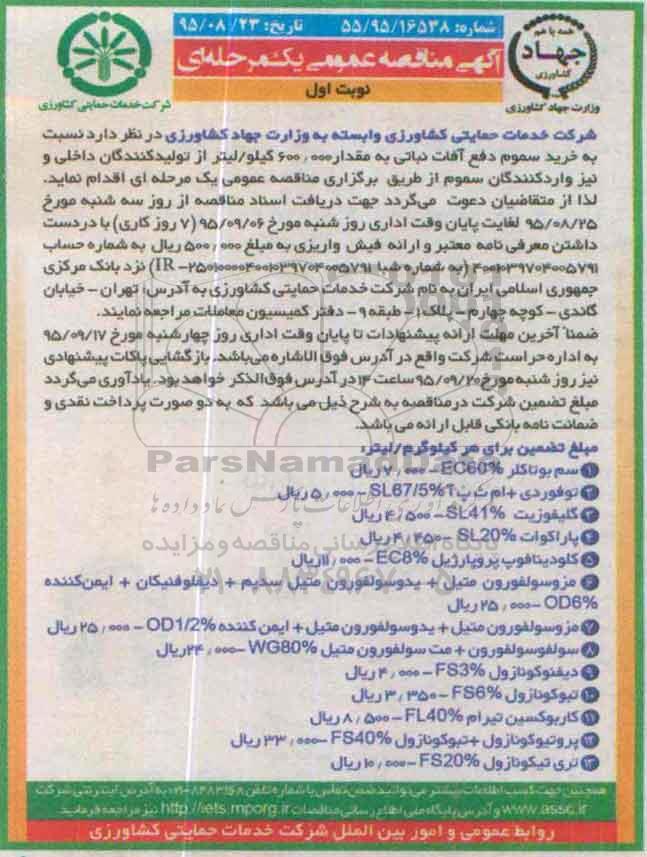 شماره: ۵۵/۹۵/۱۶۵۳۸
تاریخ: ۹۵/۰۸/۲۳
همه با هم
جهاد
کشاورزی
وزارت جهاد کشاورزی
شرکت خدمات حمایتی کشاورزی
آگهی مناقصه عمومی یک مرحله‌ای
نوبت اول
شرکت خدمات حمایتی کشاورزی وابسته به وزارت جهاد کشاورزی در نظر دارد نسبت
به خرید سموم دفع آفات نباتی به مقدار ۶۰۰٫۰۰۰ کیلو/لیتر از تولیدکنندگان داخلی و
نیز واردکنندگان سموم از طریق برگزاری مناقصه عمومی یک مرحله ای اقدام نماید.
لذا از متقاضیان دعوت می‌گردد جهت دریافت اسناد مناقصه از روز سه شنبه مورخ
۹۵/۰۸/۲۵ لغایت پایان وقت اداری روز شنبه مورخ ۹۵/۰۹/۰۶ (۷ روز کاری) با در دست
داشتن معرفی نامه معتبر و ارائه فیش واریزی به مبلغ ۵۰۰٫۰۰۰ ریال به شماره حساب
۴۰۰۱۰۳۹۷۰۴۰۰۵۷۹۱ (به شماره شبا IR –۲۵۰۱۰۰۰۰۴۰۰۱۰۳۹۷۰۴۰۰۵۷۹۱) نزد بانک مرکزی
جمهوری اسلامی ایران به نام شرکت خدمات حمایتی کشاورزی به آدرس: تهران – خیابان
گاندی – کوچه چهارم – پلاک ۱ – طبقه ۹ – دفتر کمیسیون معاملات مراجعه نمایند.
ضمناً آخرین مهلت ارائه پیشنهادات تا پایان وقت اداری روز چهارشنبه مورخ ۹۵/۰۹/۱۷
به اداره حراست شرکت واقع در آدرس فوق الاشاره می‌باشد. بازگشایی پاکات پیشنهادی
نیز روز شنبه مورخ ۹۵/۰۹/۲۰ ساعت ۱۴ در آدرس فوق‌الذکر خواهد بود. یادآوری می‌گردد
مبلغ تضمین شرکت در مناقصه به شرح ذیل می باشد که به دو صورت پرداخت نقدی و
ضمانت نامه بانکی قابل ارائه می باشد.
مبلغ تضمین برای هر کیلوگرم/لیتر:
۱ سم بوتاکلر EC60% – ۷٫۰۰۰ ریال
۲ توفوردی + ام ث پ آ SL67/5% – ۵٫۰۰۰ ریال
۳ گلیفوزیت SL41% – ۴٫۵۰۰ ریال
۴ پاراکوات SL20% – ۴٫۴۵۰ ریال
۵ کلودینافوپ پروپارژیل EC8% – ۱۱٫۰۰۰ ریال
۶ مزوسولفورون متیل + یدوسولفورون متیل سدیم + دیفلوفنیکان + ایمن‌کننده
OD6% – ۲۵٫۰۰۰ ریال
۷ مزوسولفورون متیل + یدوسولفورون متیل + ایمن کننده OD1/2% – ۲۵٫۰۰۰ ریال
۸ سولفوسولفورون + مت سولفورون متیل WG80% – ۲۴٫۰۰۰ ریال
۹ دیفنوکونازول FS3% – ۴٫۰۰۰ ریال
۱۰ تبوکونازول FS6% – ۳٫۳۵۰ ریال
۱۱ کاربوکسین تیرام FL40% – ۸٫۵۰۰ ریال
۱۲ پروتیوکونازول + تبوکونازول FS40% – ۳۳٫۰۰۰ ریال
۱۳ تری تیکونازول FS20% – ۱۰٫۰۰۰ ریال
همچنین جهت کسب اطلاعات بیشتر می توانید ضمن تماس با شماره تلفن ۸۴۸۳۱۶۸–۰۲۱ به آدرس اینترنتی شرکت
www.assc.ir و آدرس پایگاه ملی اطلاع رسانی مناقصات http://iets.mporg.ir نیز مراجعه فرمایید
روابط عمومی و امور بین الملل شرکت خدمات حمایتی کشاورزی
ParsNamadData
پایگاه اطلاع رسانی مناقصه و مزایده